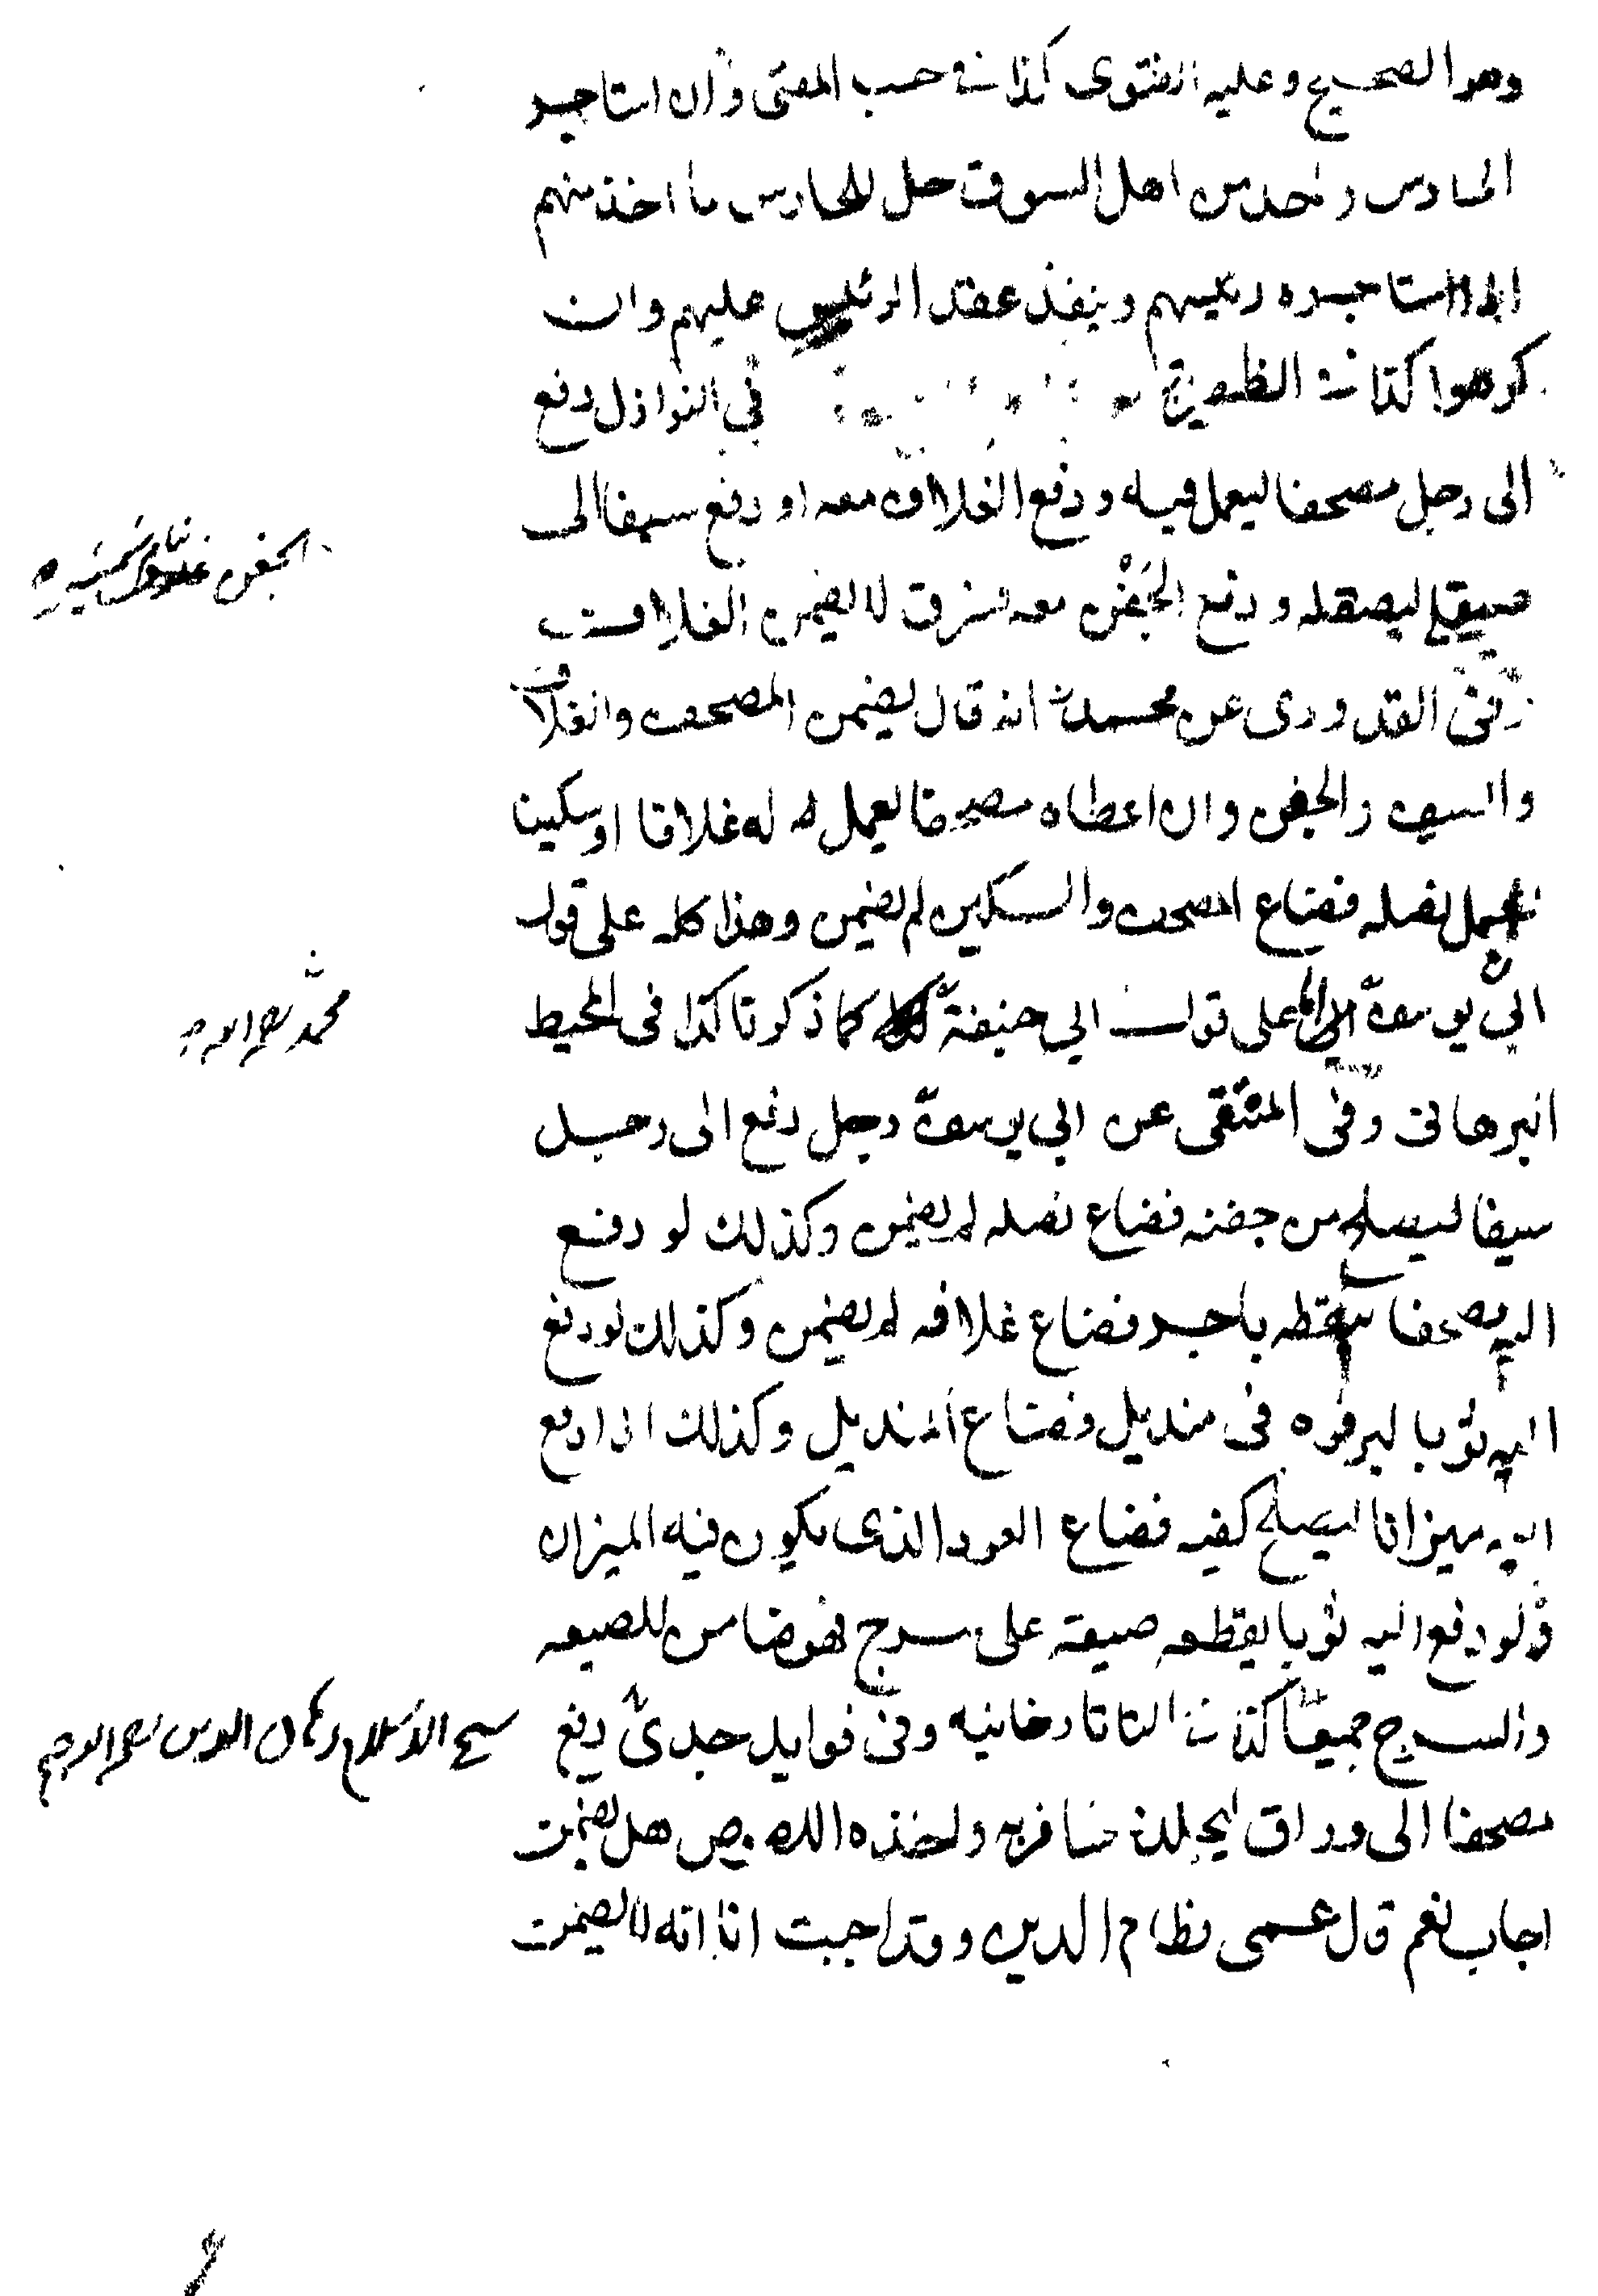 وهو الصحيح وعليه الفتوى كذا في حسب المفتى وان استاجر
الحارس واحد من اهل السوق حل للحارس ما اخذ منهم
اذا استاجره رئيسهم وينفذ عقد الرئيس عليهم وان
كرهوا كذا في الظهيرية في النوازل دفع
الى رجل مصحفا ليعمل فيه ودفع الغلاف معه او دفع سيفا الى
صيقل ليصقله ودفع الجفن معه فسرق لا يضمن الغلاف
وفي القدوري عن محمد انه قال يضمن المصحف والغلاف
والسيف والجفن وان اعطاه مصحفا يعمل له غلافا او سكينا
ليعمل نصله فضاع المصحف والسكين لم يضمن وهذا كله على قول
ابي يوسف على قول ابي حنيفة كما ذكرنا كذا في المحيط
البرهاني وفي المنتقى عن ابي يوسف رجل دفع الى رجل
سيفا ليصلح من جفنه فضاع نصله لم يضمن وكذلك لو دفع
اليه مصحفا ينقطه باجر فضاع غلافه لم يضمن وكذلك لو دفع
اليه ثوبا ليرفوه في منديل فضاع المنديل وكذلك اذا دفع
اليه ميزانا ليصلح كفيه فضاع العود الذى يكون فيه الميزان
ولو دفع اليه ثوبا يقطعه على سرج فهو ضامن
والسرج جميعا كذا في التاتارخانيه وفي فوايد جدى دفع
مصحفا الى وراق ليجلده فسافر به واخذه اللصوص هل يضمن
اجاب نعم قال عمى نظام الدين وقد اجبت انا انه لا يضمن
الجفن نيام شمشير
محمد
شيخ الاسلام برهان الدين